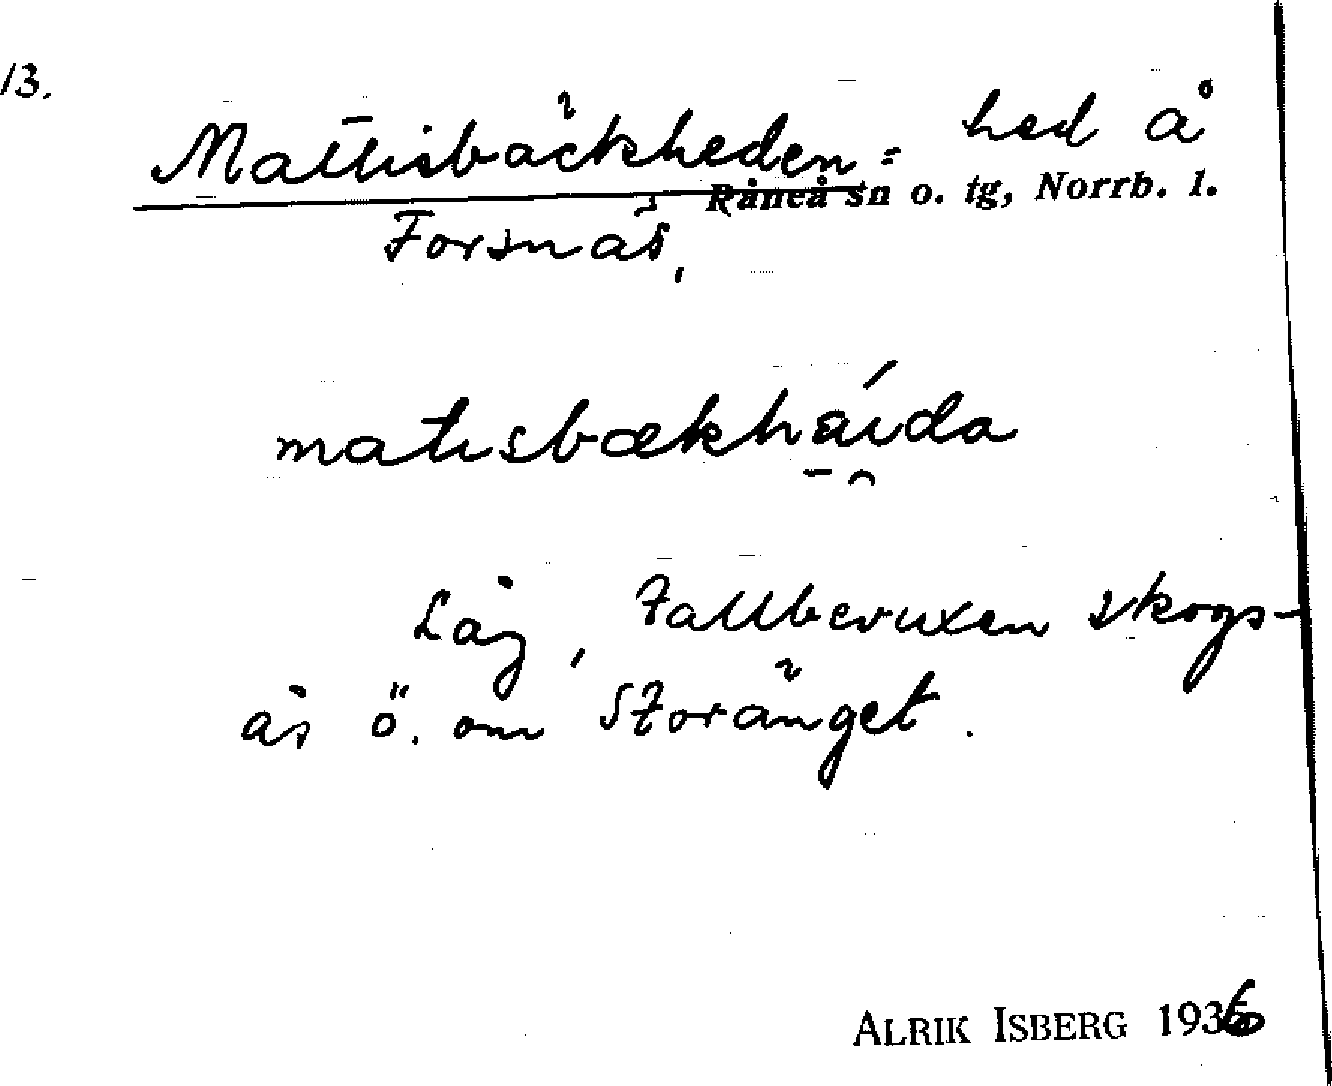 13.
Mattisbäckheden = hed å
Råneå sn o. tg, Norrb. l.
Forsnäs,
matısbækháıda
Låg, tallbevuxen skogs-
ås ö. om Storänget.
ALRIK ISBERG 1936